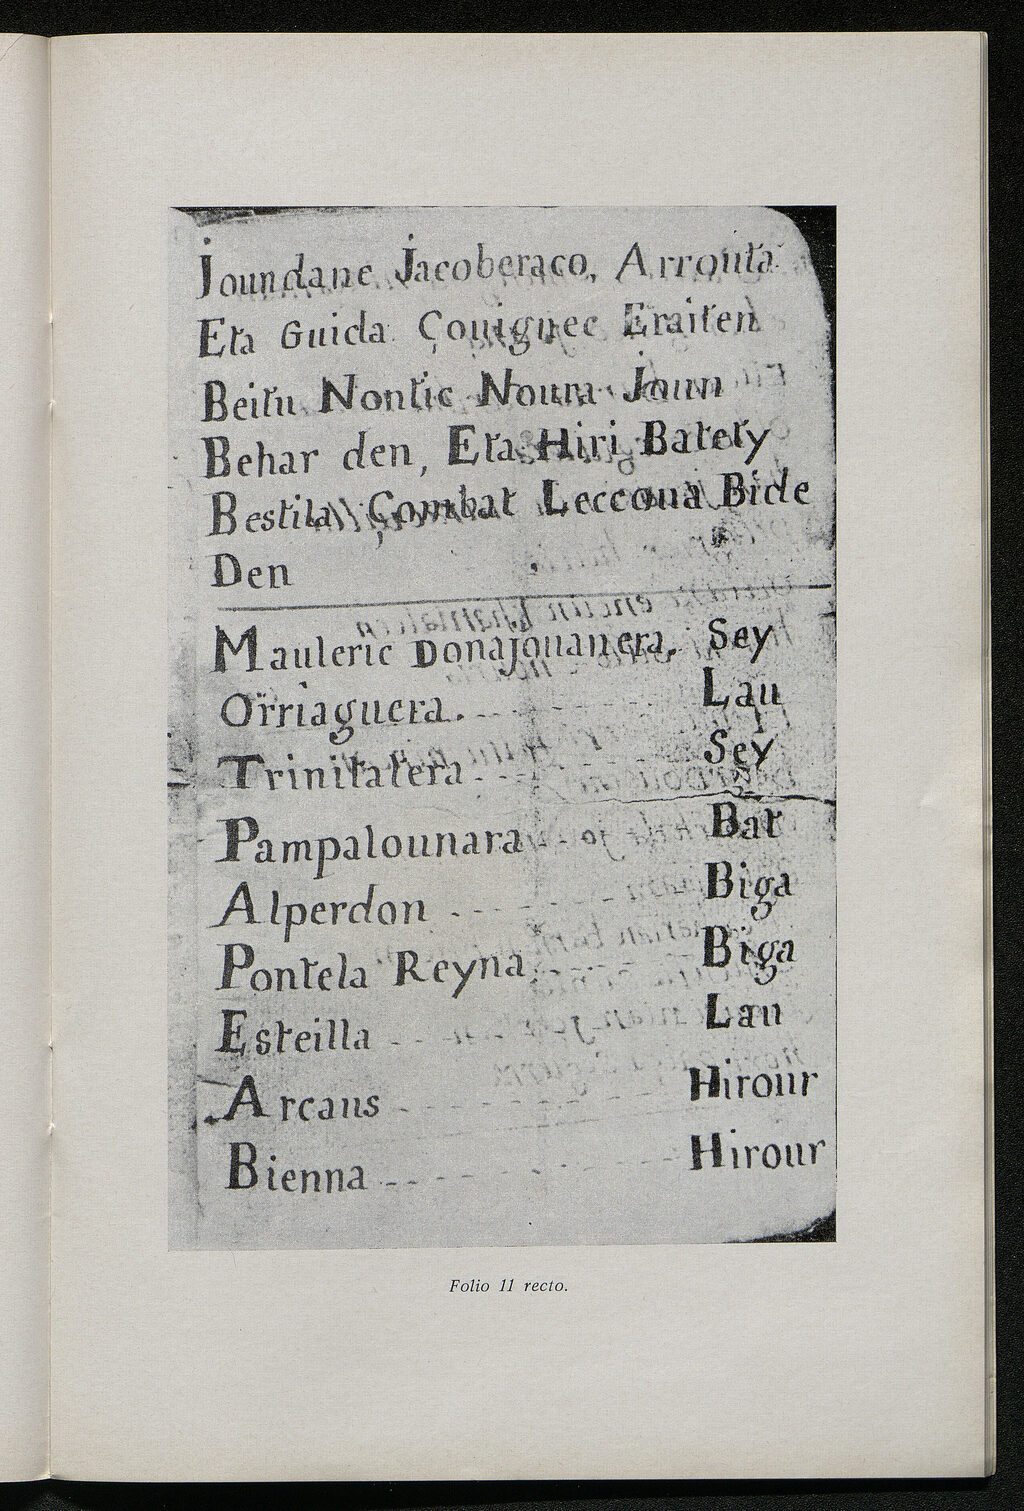 Joundane Jacoberaco, Arrouta
Eta Guida Çouignec Eraiten
Beitu Nontic Noura Joun
Behar den, Eta Hiri Batety
Bestila Çombat Leccoua Bide
Den
Mauleric Donajouanera. Sey
Orriaguera. Lau
Trinitatera Sey
Pampalounara Bat
Alperdon Biga
Pontela Reyna Biga
Esteilla Lau
Arcaus Hirour
Bienna Hirour
Folio 11 recto.